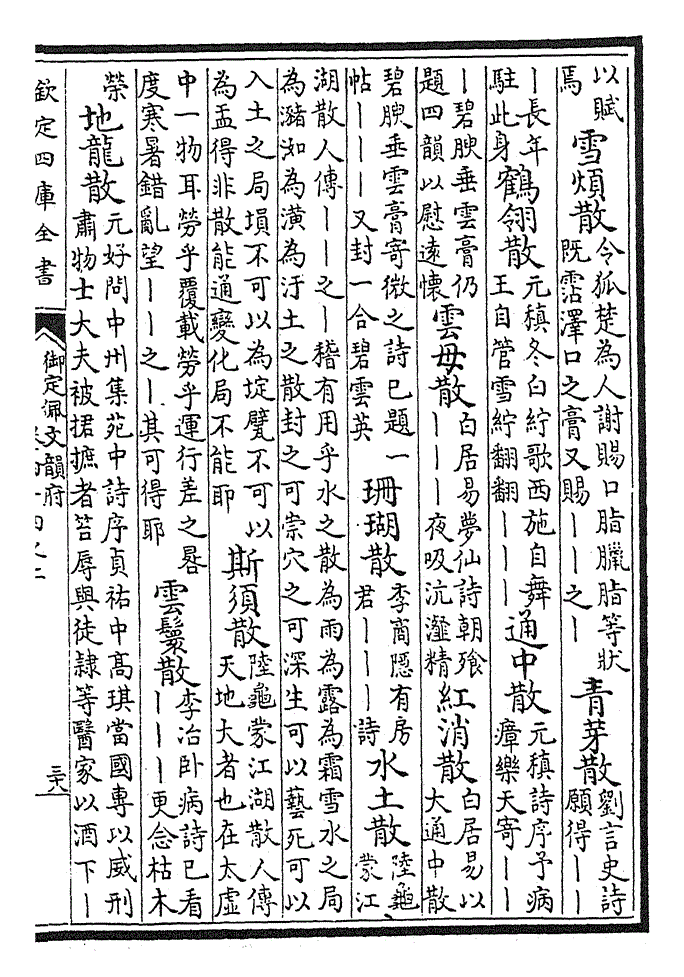 以賦
焉
雪煩散
令狐楚為人謝賜口脂臘脂等狀
既霑澤口之膏又賜丨丨之丨
青芽散
劉言史詩
願得丨丨
丨長年
駐此身
鶴翎散
元稹冬白紵歌西施自舞
王自管雪紵翻翻丨丨丨
通中散
元稹詩序予病
瘴樂天寄丨丨
丨碧腴垂雲膏仍
題四韻以慰遠懷
雲母散
白居易夢仙詩朝飱
丨丨丨夜吸沆瀣精
紅消散
白居易以
大通中散
碧腴垂雲膏寄微之詩已題一
帖丨丨丨又封一合碧雲英
珊瑚散
李商隱有房
君丨丨丨詩
水土散
陸龜
蒙江
湖散人傳丨丨之丨稽有用乎水之散為雨為露為霜雪水之局
為瀦洳為潢為汙土之散封之可崇穴之可深生可以藝死可以
入土之局塤不可以為埞甓不可以
為盂得非散能通變化局不能耶
斯須散
陸龜蒙江湖散人傳
天地大者也在太虛
中一物耳勞乎覆載勞乎運行差之晷
度寒暑錯亂望丨丨之丨其可得耶
雲鬟散
李冶卧病詩已看
丨丨丨更念枯木
榮
地龍散
元好問中州集苑中詩序貞祐中高琪當國專以威刑
肅物士大夫被捃摭者笞辱與徒隸等醫家以酒下丨
欽定四庫全書
御定佩文韻府
三十八